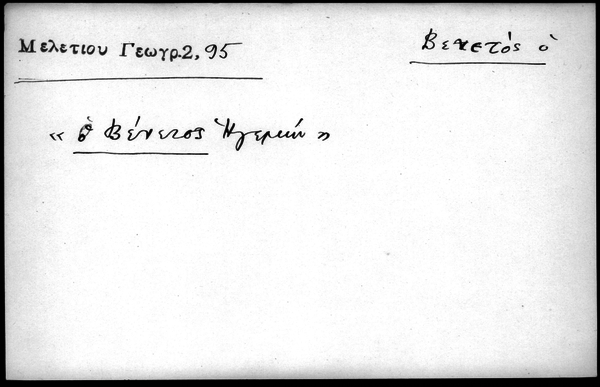 Μελετιου Γεωγρ.2, 95
Βενετός ὁ
« ὁ Βένετος Ἡγεμών »